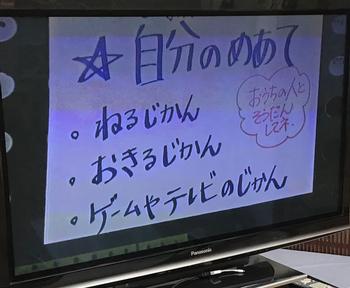 ☆自分のめあて
おうちの人と
そうだん
してネ.
。ねるじかん
。おきるじかん
。ゲームやテレビのじかん
Panasonic